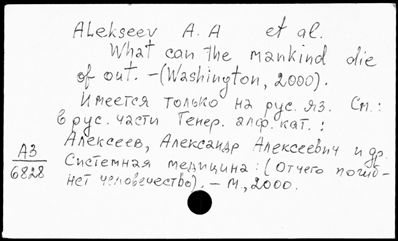 Alekseev A. A et al.
What can the mankind die
of out. – (Washington, 2000).
Имеется только на рус. яз. См.:
в рус. части Генер. алф. кат.:
Алексеев, Александр Алексеевич и др.
Системная медицина: (Отчего погиб-
нет человечество). – М., 2000.
А3
6828